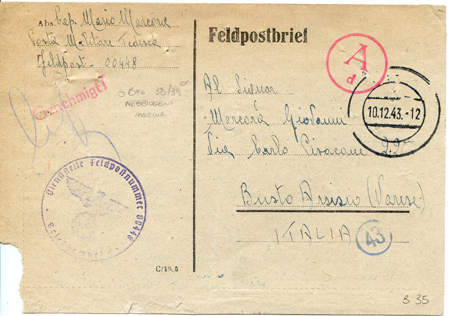 Cap. Mario Marcora
Posta Militare Tedesca
Feldpost - 00448
Genehmigt
Dienststelle Feldpostnummer 00448
C/19,5
Feldpostbrief
A
d
10.12.43.-12
Al Signor
Marcora Giovanni
Via Carlo Pisacane
Busto Arsizio (Varese)
ITALIA
43
S 35